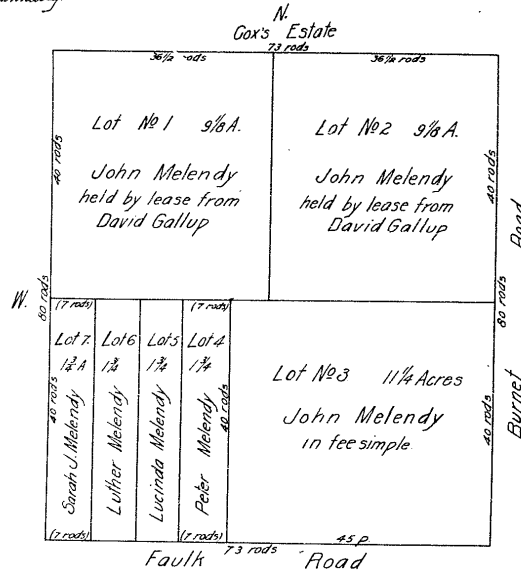 N.
Cox's Estate
73 rods
36½ rods
36½ rods
Lot № 1 9⅛ A.
John Melendy
held by lease from
David Gallup
40 rods
Lot № 2 9⅛ A.
John Melendy
held by lease from
David Gallup
40 rods
W.
80 rods
80 rods
Burnet Road
(7 rods)
(7 rods)
Lot 7.
1¾ A
Sarah J. Melendy
40 rods
(7 rods)
Lot 6
1¾
Luther Melendy
Lot 5
1¾
Lucinda Melendy
Lot 4
1¾
Peter Melendy
40 rods
(7 rods)
Lot № 3 11¼ Acres
John Melendy
in fee simple
40 rods
45 p.
73 rods
Faulk Road